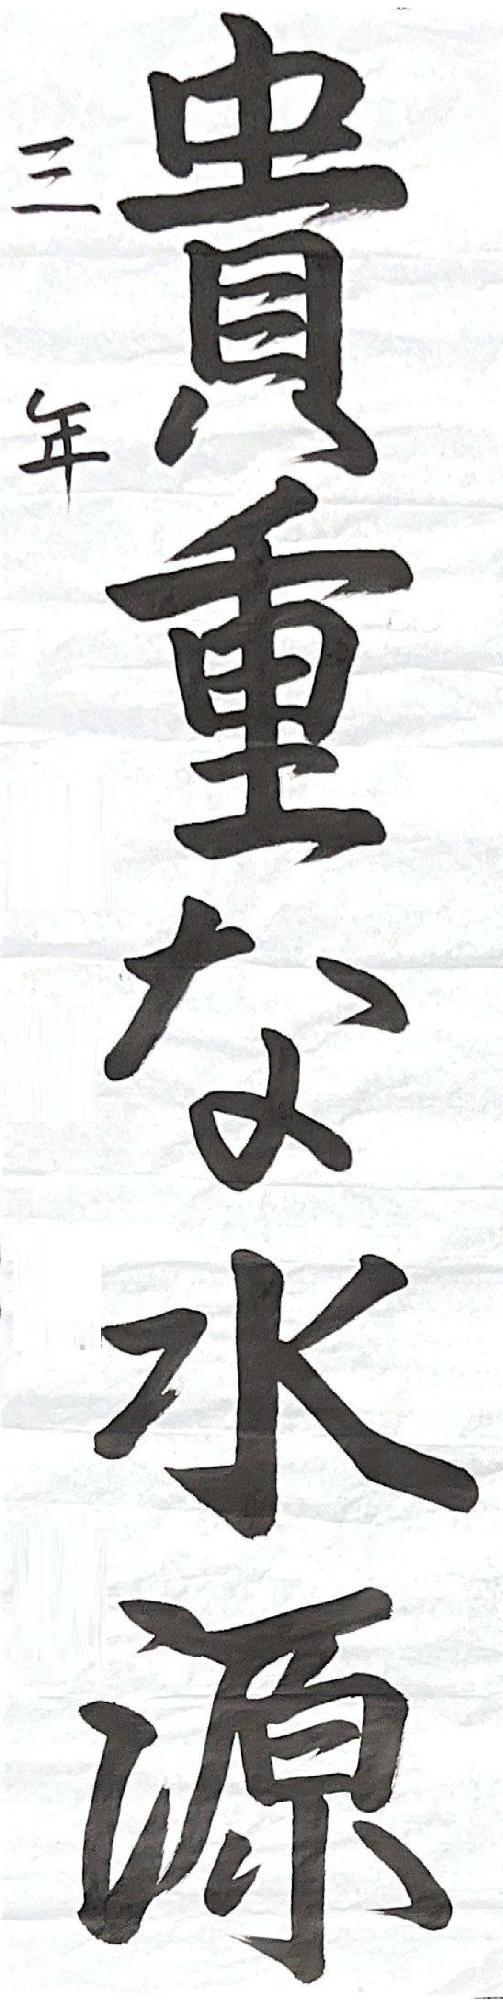 貴重な水源
三年